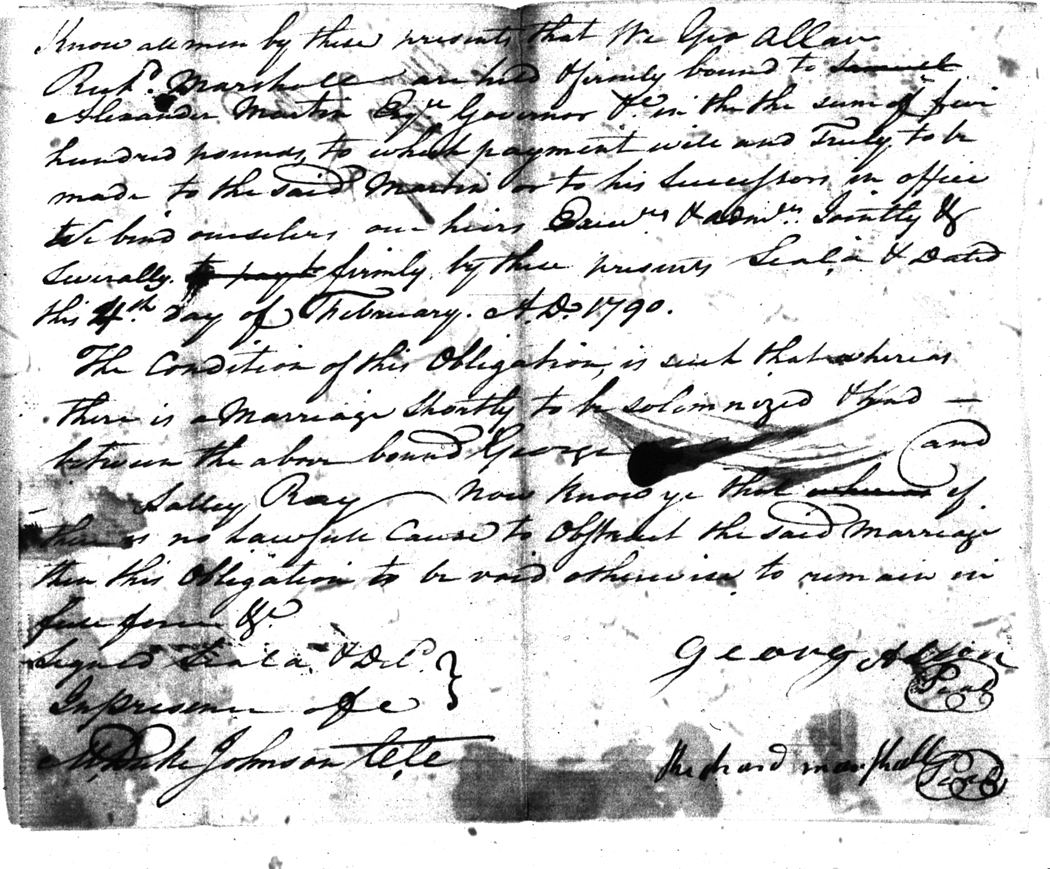 Know all men by these presents that We Geo Allan
Richd. Marshall are held & firmly bound to Samuel
Alexander Martin Esqre Governor &c. in the the sum of five
hundred pounds, to which payment will and Truly to be
made to the said Martin or to his Successors in office
We bind ourselves our heirs Execurs. & admrs. Jointly &
Severally to payt firmly by these presents Seal'd & Dated
this 4th. Day of February. A.D. 1790.
The Condition of this Obligation, is such that whereas
there is a Marriage Shortly to be solemnized & had —
between the above bound George and
Salley Ray Now Know ye that whereas if
there is no Lawfull Cause to Obstruct the said Marriage
then this Obligation to be void otherwise to remain in
full force &c
Signed Seal'd & Deld.
In presence off
M. Duke Johnson
George Allen
Seal
Richard marshall
Seal